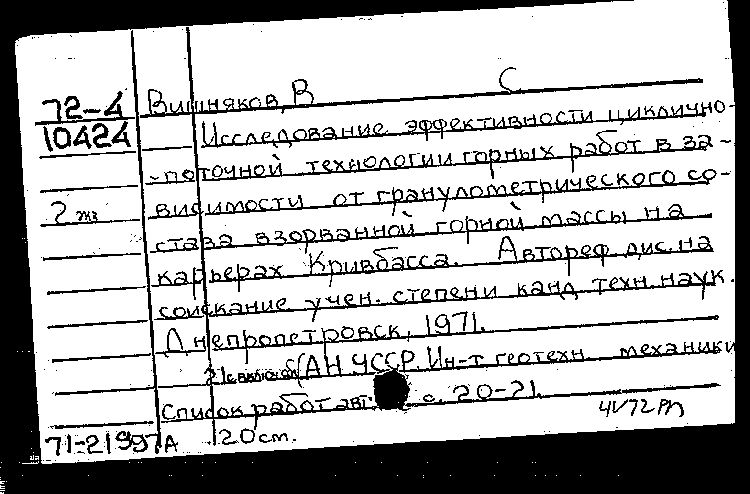 72-4 Вишняков, В С
10424 Исследование эффективности циклично-
-поточной технологии горных работ в за-
2 экз висимости от гранулометрического со-
става взорванной горной массы на
карьерах Кривбасса. Автореф. дис. на
соискание учен. степени канд. техн. наук.
Днепропетровск, 1971.
21 с включ. обл. (АН УССР. Ин-т геотехн. механики
Список работ авт. с. 20-21.
71-21997А 20 см.